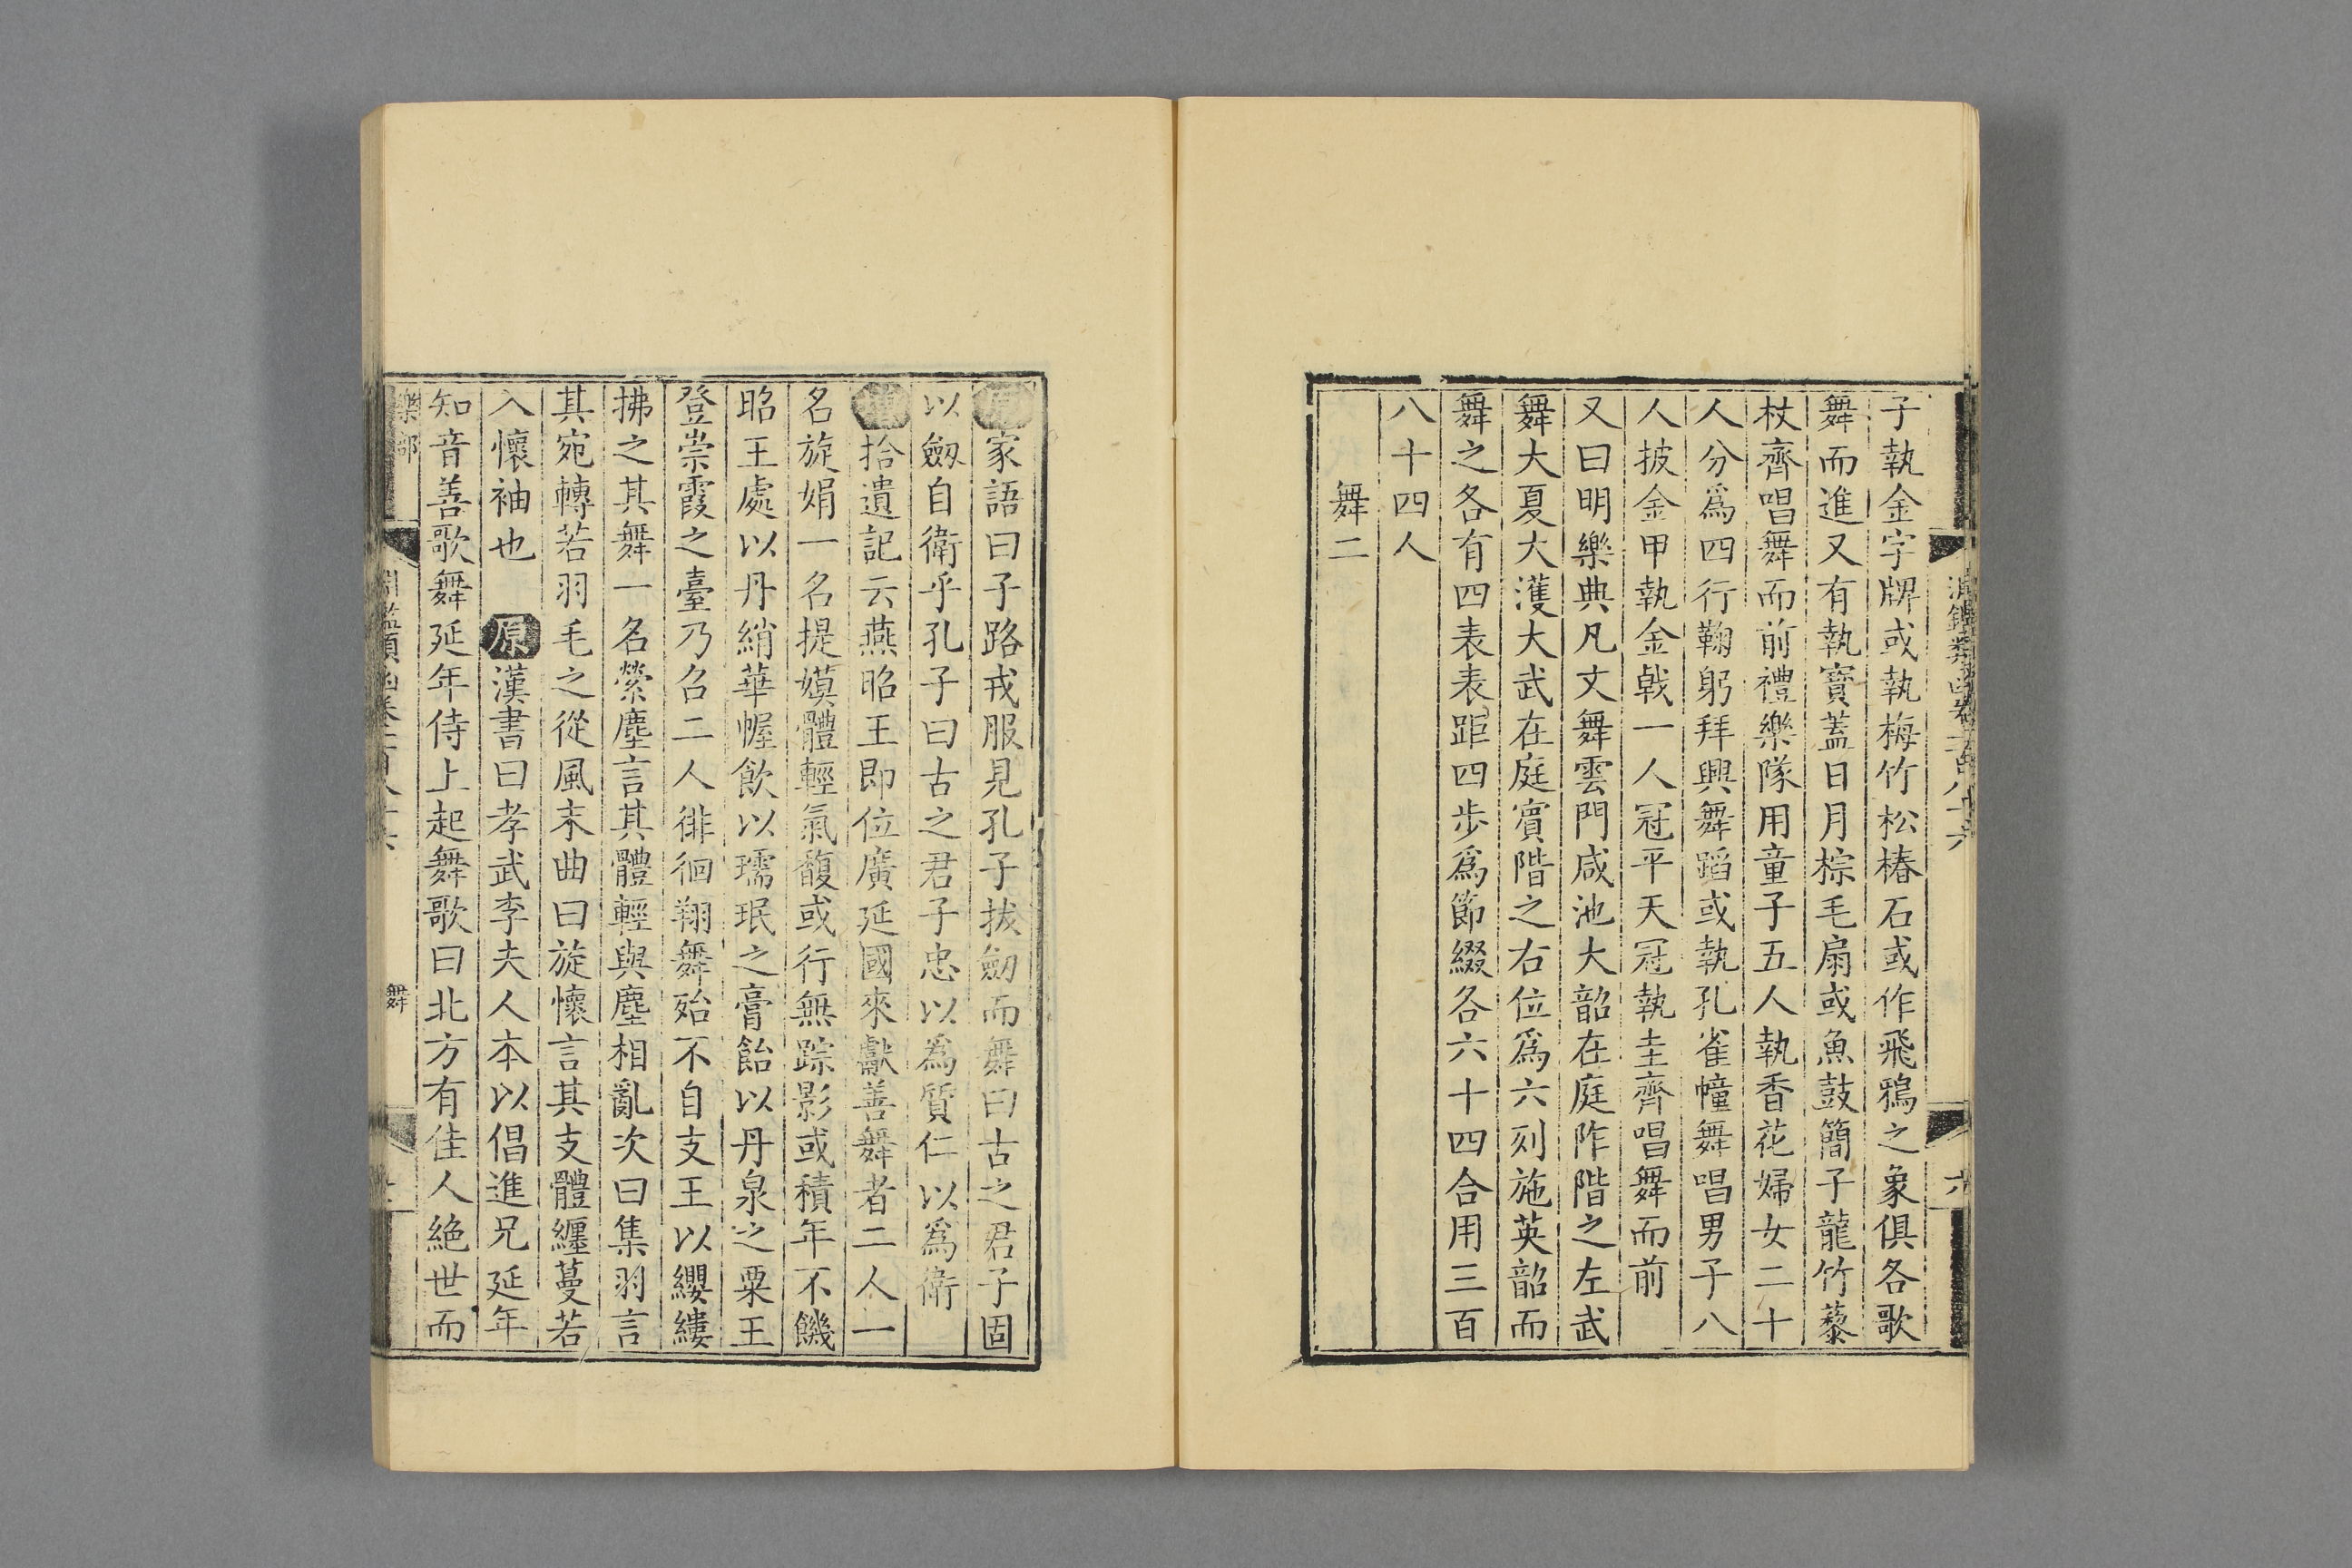 子執金字牌或執梅竹松椿石或作飛鴉之象俱各歌
舞而進又有執寳蓋日月棕毛扇或魚鼓簡子龍竹藜
杖齊唱舞而前禮樂隊用童子五人執香花婦女二十
人分爲四行鞠躬拜興舞蹈或執孔雀幢舞唱男子八
人披金甲執金戟一人冠平天冠執圭齊唱舞而前
又曰明樂典凡文舞雲門咸池大韶在庭阼階之左武
舞大夏大濩大武在庭賓階之右位爲六列施英韶而
舞之各有四表表距四步爲節綴各六十四合用三百
八十四人
舞二
原家語曰子路戎服見孔子拔劒而舞曰古之君子固
以劒自衛乎孔子曰古之君子忠以爲質仁以爲衛
增拾遺記云燕昭王即位廣延國來獻善舞者二人一
名旋娟一名提嫫體輕氣馥或行無踪影或積年不饑
昭王處以丹綃華幄飲以瓀珉之膏飴以丹泉之粟王
登崇霞之臺乃召二人徘徊翔舞殆不自支王以纓縷
拂之其舞一名縈塵言其體輕與塵相亂次曰集羽言
其宛轉若羽毛之從風末曲曰旋懷言其支體纏蔓若
入懷袖也 原漢書曰孝武李夫人本以倡進兄延年
知音善歌舞延年侍上起舞歌曰北方有佳人絶世而
樂部
舞